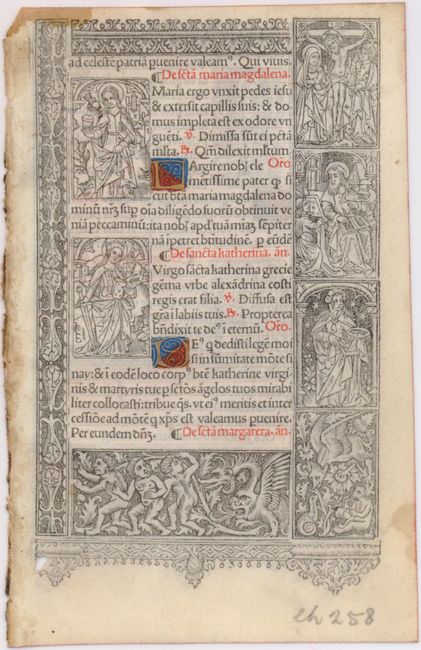 ad celeste patriã puenire valeamꝰ. Qui viuis.
¶De sctã maria magdalena.
Maria ergo vnxit pedes iesu
& extersit capillis suis: & do
mus impleta est ex odore vn
guẽti. ℣. Dimissa sũt ei pctã
mlta. ℟. Qm̃ dilexit mltum
Argire nobᷤ cle Orõ
mẽtissime pater ꝙ si
cut btã maria magdalena do
minũ nr̃ʒ sup oĩa diligẽdo suorũ obtinuit ve
niã peccaminũ: ita nobᷤ apd' tuã miãʒ sẽpiter
nã ipetret btitudinẽ. p eũdẽ
¶De sancta katherina. añ.
Virgo sãcta katherina grecie
gẽma vrbe alexãdrina costi
regis erat filia. ℣. Diffusa est
grã ĩ labiis tuis. ℟. Propterea
bñdixit te deꝰ ĩ eternũ. Orõ.
Eꝰ q dedisti legẽ moi
si in sũmitate mõte si
nay: & ĩ eodẽ loco corpꝰ btẽ katherine virgi
nis & martyris tue p sctõs ãgelos tuos mirabi
liter collocasti: tribue qs. vt eiꝰ meritis et inter
cessiõe ad mõtẽ q xps̃ est valeamus puenire.
Per eundem dñʒ. ¶De sctã margareta. añ.
ch 258